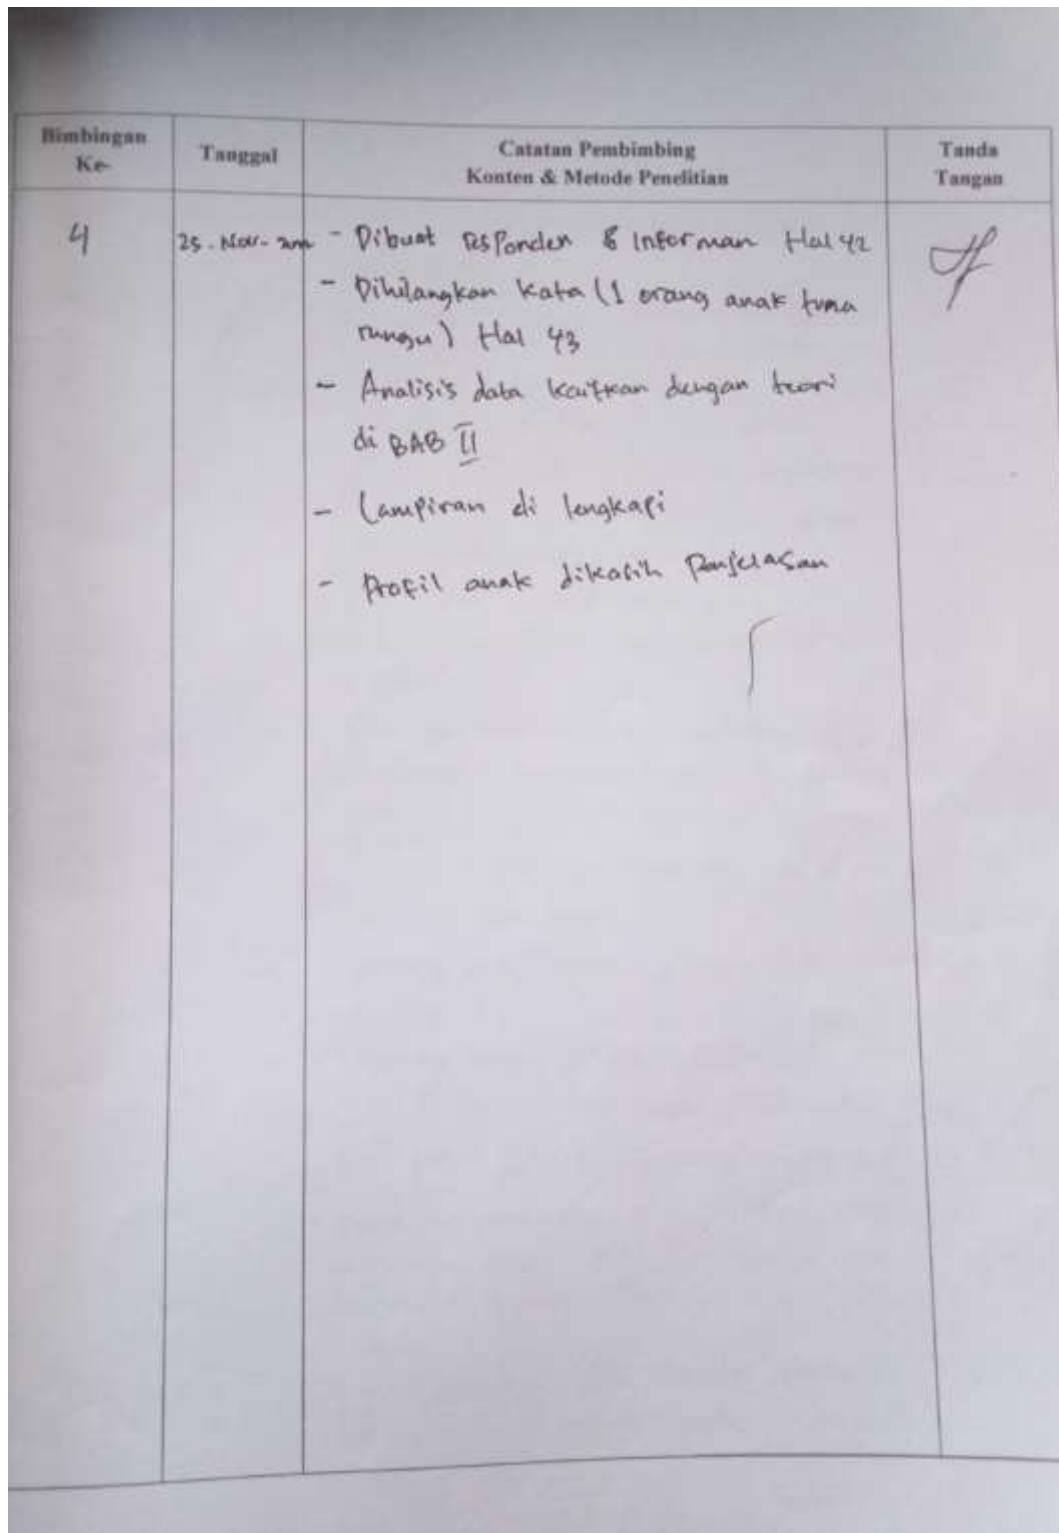 Bimbingan Ke-
Tanggal
Catatan Pembimbing
Konten & Metode Penelitian
Tanda Tangan
4
25 - Nov -
- Dibuat Responden & Informan Hal 42
- Dihilangkan kata (1 orang anak tuna
rungu) Hal 43
- Analisis data kaitkan dengan teori
di BAB II
- Lampiran di lengkapi
- Profil anak dikasih Penjelasan